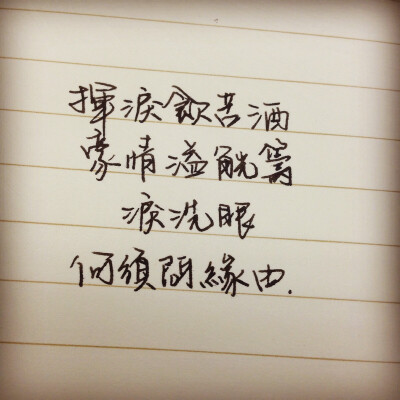 揮淚飲苦酒
豪情溢觥籌
淚洗眼
何須問緣由.